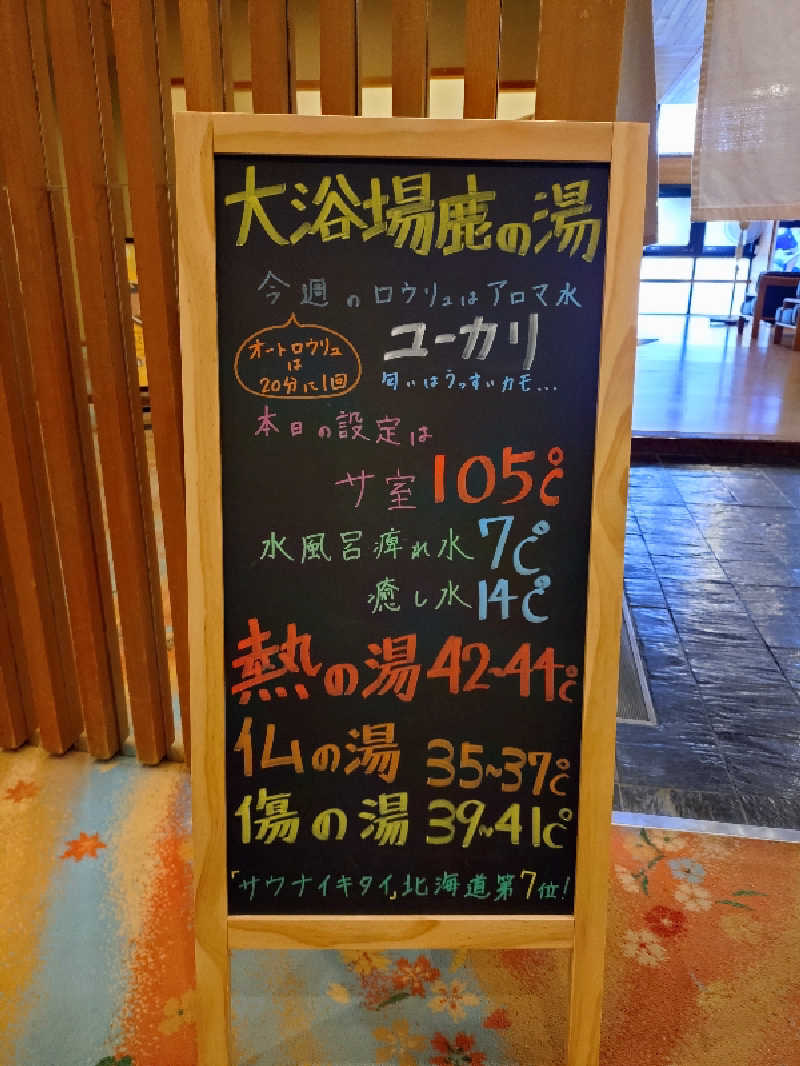 大浴場鹿の湯
今週のロウリュはアロマ水
オートロウリュ
は
20分に1回
ユーカリ
匂いはうっすいカモ...
本日の設定は
サ室 105℃
水風呂痺れ水 7℃
癒し水 14℃
熱の湯 42~44℃
仏の湯 35~37℃
傷の湯 39~41℃
「サウナイキタイ」北海道第7位!